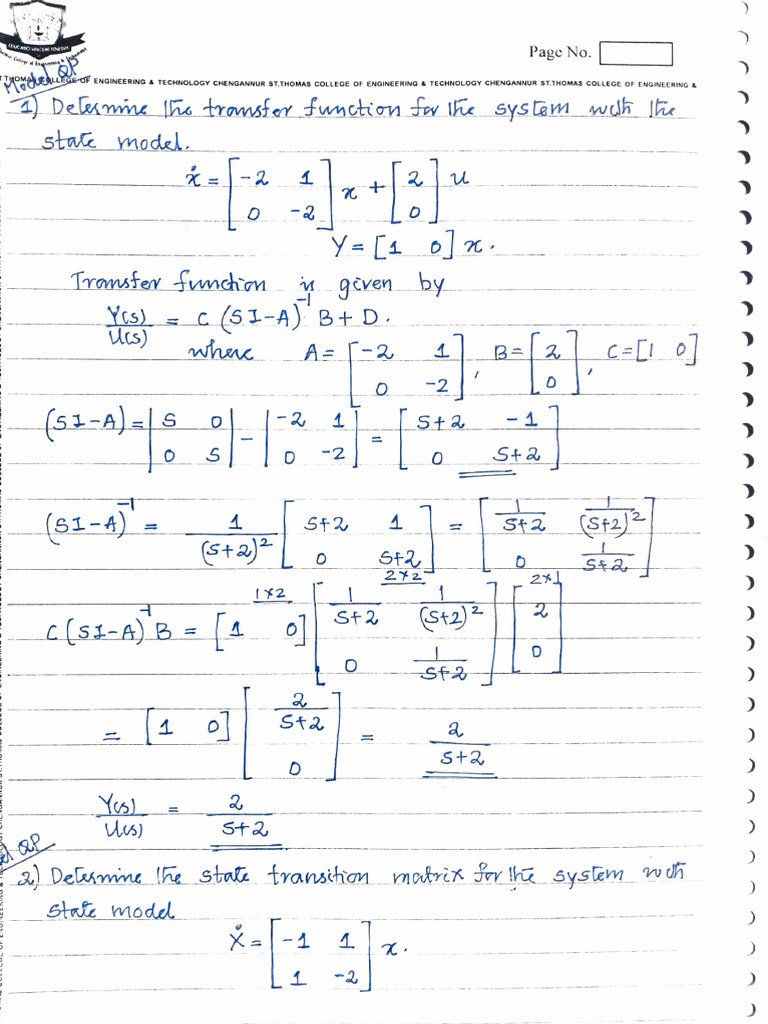 EDUCARE VINCERE SERVIRE
Page No.
ST.THOMAS COLLEGE OF ENGINEERING & TECHNOLOGY CHENGANNUR ST.THOMAS COLLEGE OF ENGINEERING & TECHNOLOGY CHENGANNUR ST.THOMAS COLLEGE OF ENGINEERING &
Model QP
1) Determine the transfer function for the system with the
state model.
ẋ = [-2 1; 0 -2] x + [2; 0] u
Y = [1 0] x.
Transfer function is given by
Y(s)/U(s) = C (SI-A)^-1 B + D.
where A = [-2 1; 0 -2], B = [2; 0], C = [1 0]
(SI-A) = |S 0; 0 S| - |-2 1; 0 -2| = [S+2 -1; 0 S+2]
(SI-A)^-1 = 1/(S+2)^2 [S+2 1; 0 S+2] = [1/(S+2) 1/(S+2)^2; 0 1/(S+2)]
1×2 2×2 2×1
C (SI-A)^-1 B = [1 0] [1/(S+2) 1/(S+2)^2; 0 1/(S+2)] [2; 0]
= [1 0] [2/(S+2); 0] = 2/(S+2)
Y(s)/U(s) = 2/(S+2)
QP
2) Determine the state transition matrix for the system with
state model
Ẋ = [-1 1; 1 -2] x.